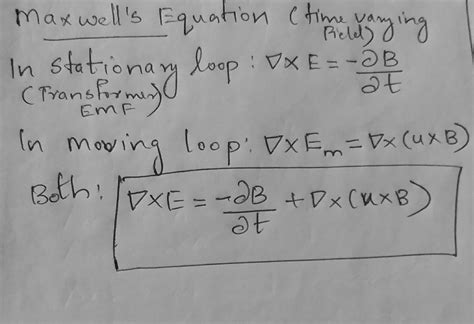 Maxwell's Equation (time varying field)
In stationary loop: ∇×E = -∂B/∂t
(Transformer EMF)
In moving loop: ∇×Em = ∇×(u×B)
Both: ∇×E = -∂B/∂t + ∇×(u×B)